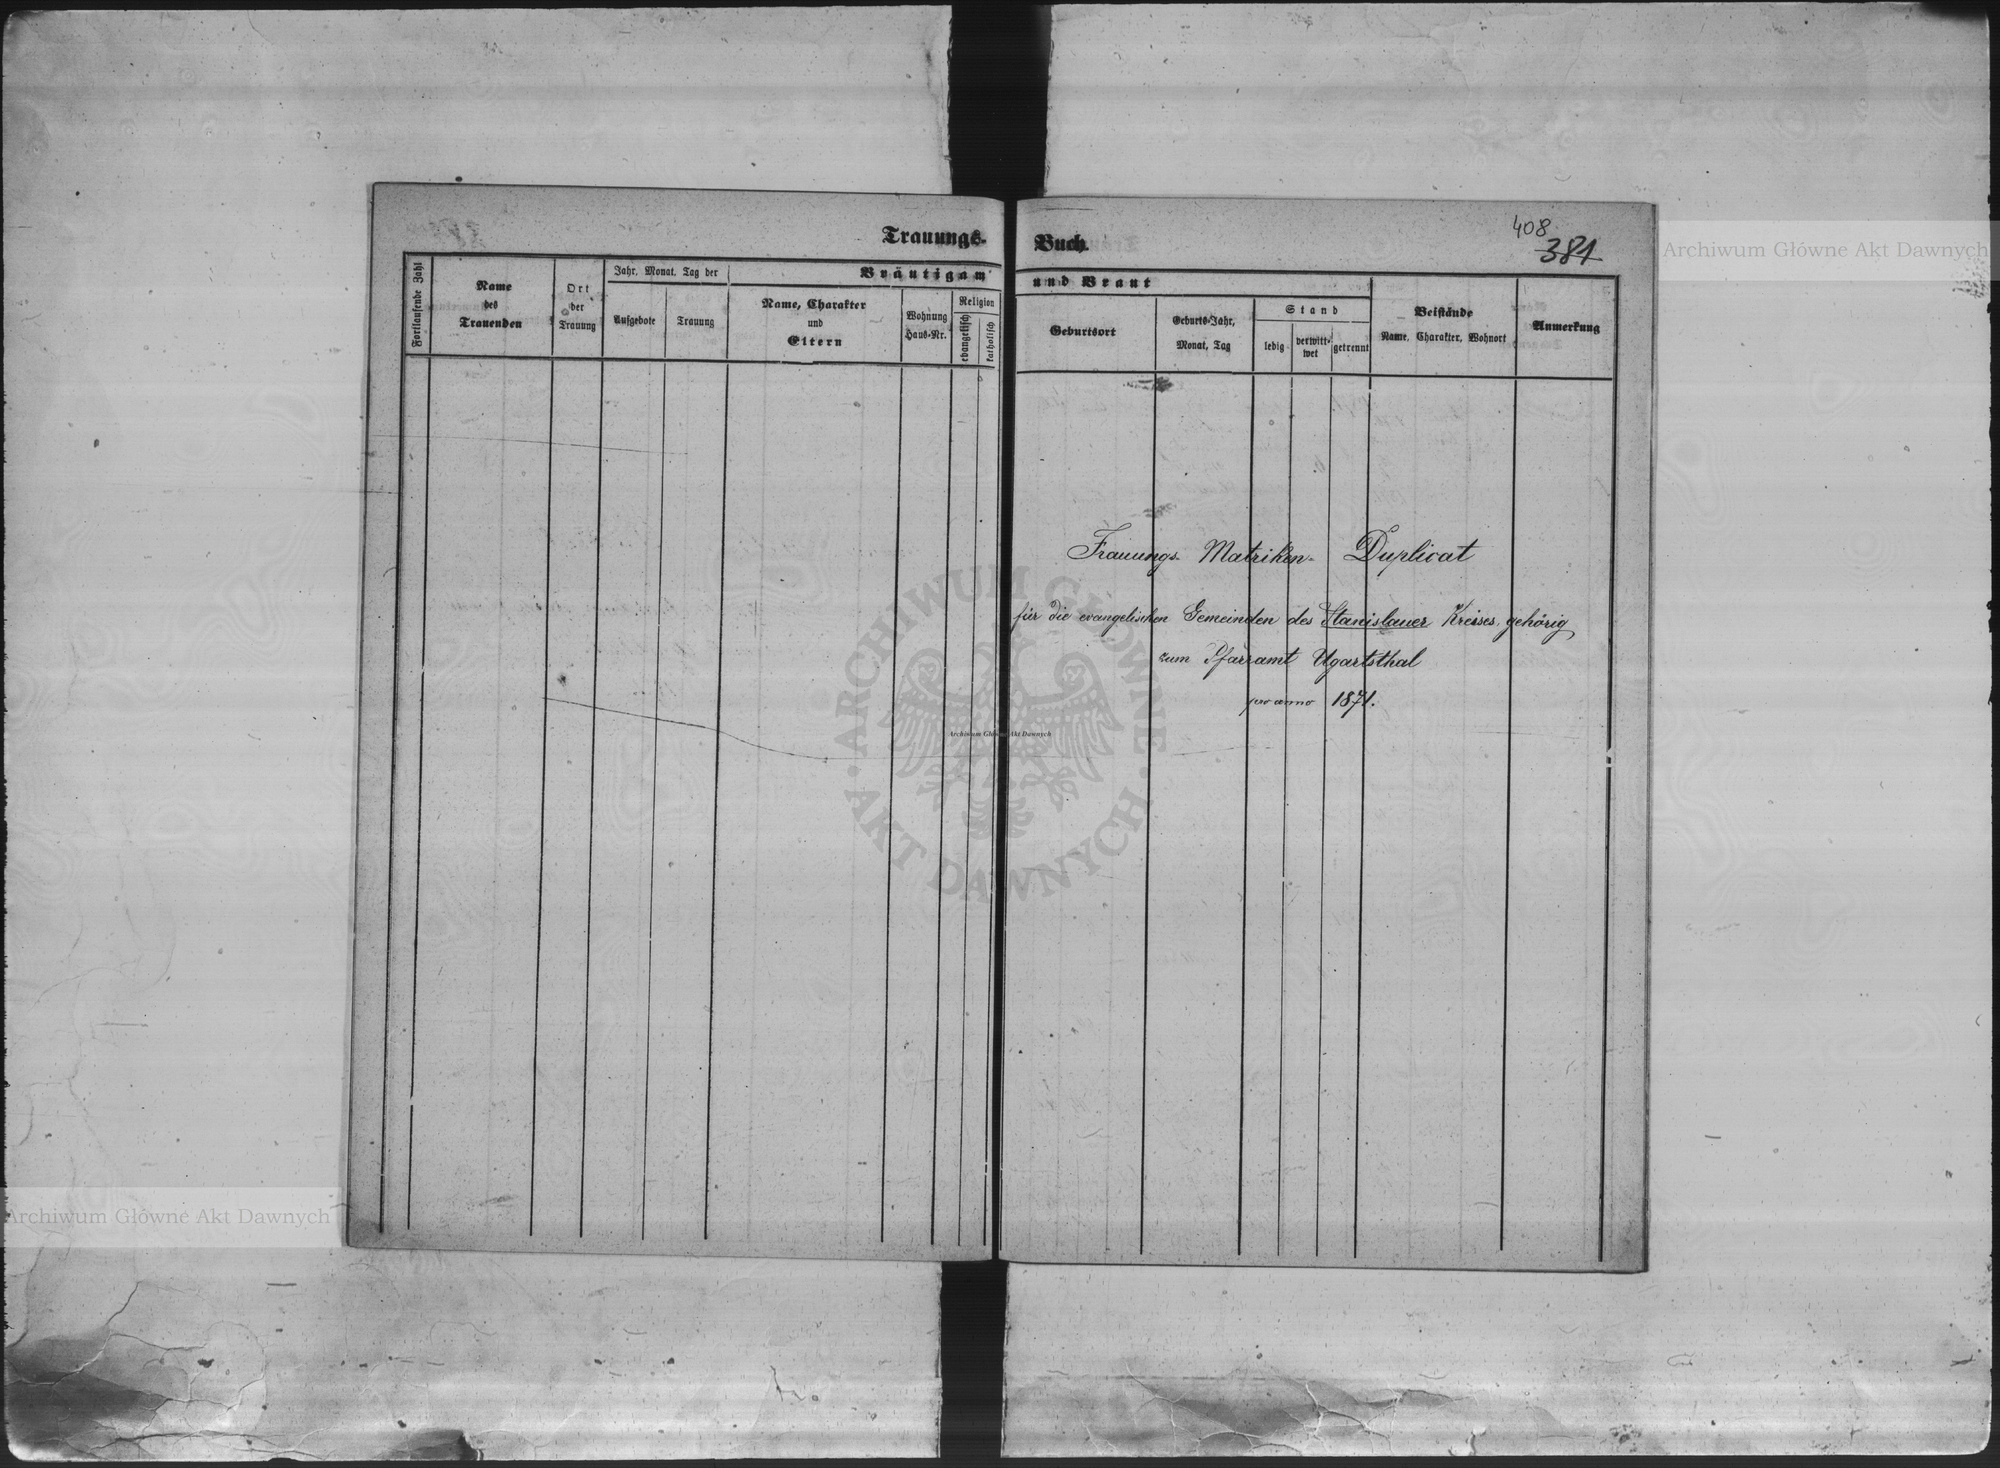 408
381
Trauungs-Buch.
Fortlaufende Zahl
Name des Trauenden
Ort der Trauung
Jahr, Monat, Tag der
Aufgebote
Trauung
Bräutigam und Braut
Name, Charakter und Eltern
Wohnung Haus-Nr.
Religion
evangelisch
katholisch
Geburtsort
Geburts-Jahr, Monat, Tag
Stand
ledig
verwittwet
getrennt
Beistände
Name, Charakter, Wohnort
Anmerkung
Trauungs- Matriken- Duplicat
für die evangelischen Gemeinden des Stanislauer Kreises, gehörig
zum Pfarramt Ugartsthal
pro anno 1871.
Archiwum Główne Akt Dawnych
ARCHIWUM GŁÓWNE
AKT DAWNYCH
Archiwum Główne Akt Dawnych
Archiwum Główne Akt Dawnych